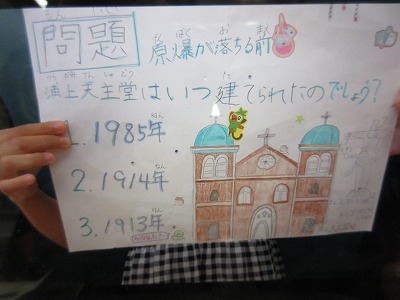 問題
原爆が落ちる前
浦上天主堂はいつ建てられたのでしょう?
1. 1985年
2. 1914年
3. 1913年